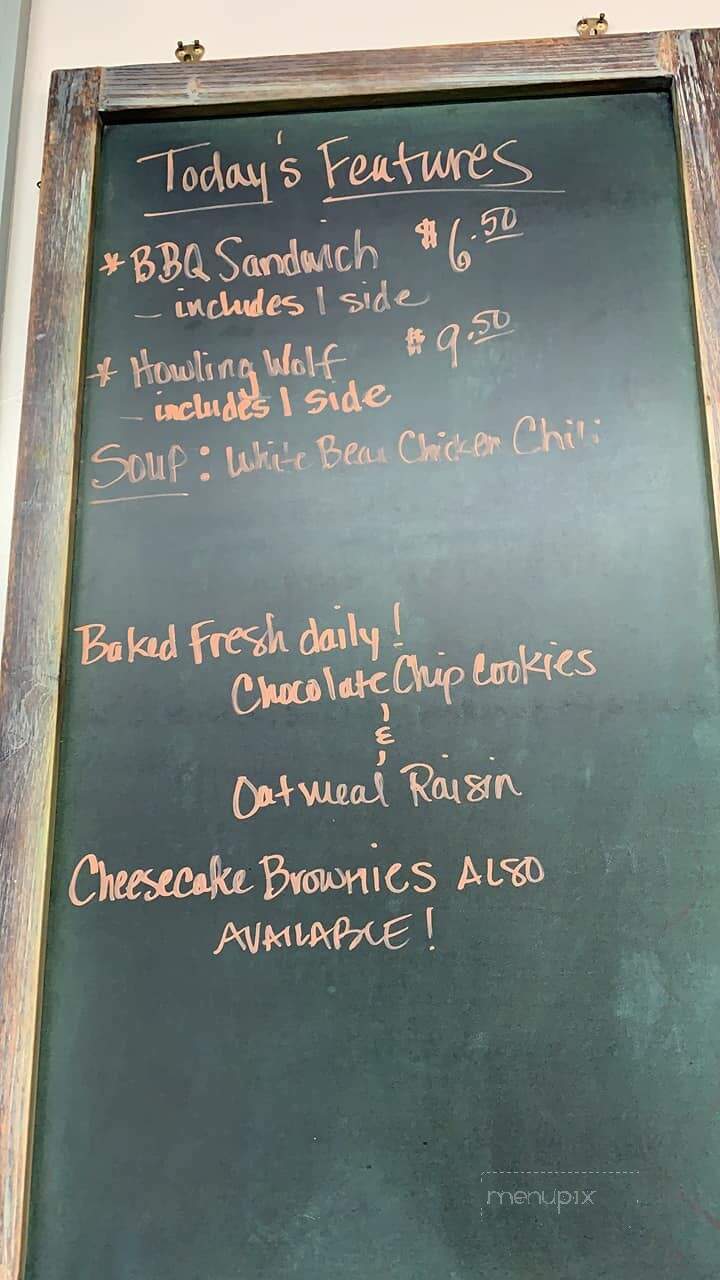 Today's Features
* BBQ Sandwich $6.50
- includes 1 side
* Howling Wolf $9.50
- includes 1 side
Soup: White Bean Chicken Chili
Baked Fresh daily!
Chocolate Chip Cookies
&
Oatmeal Raisin
Cheesecake Brownies ALSO
AVAILABLE!
menupix